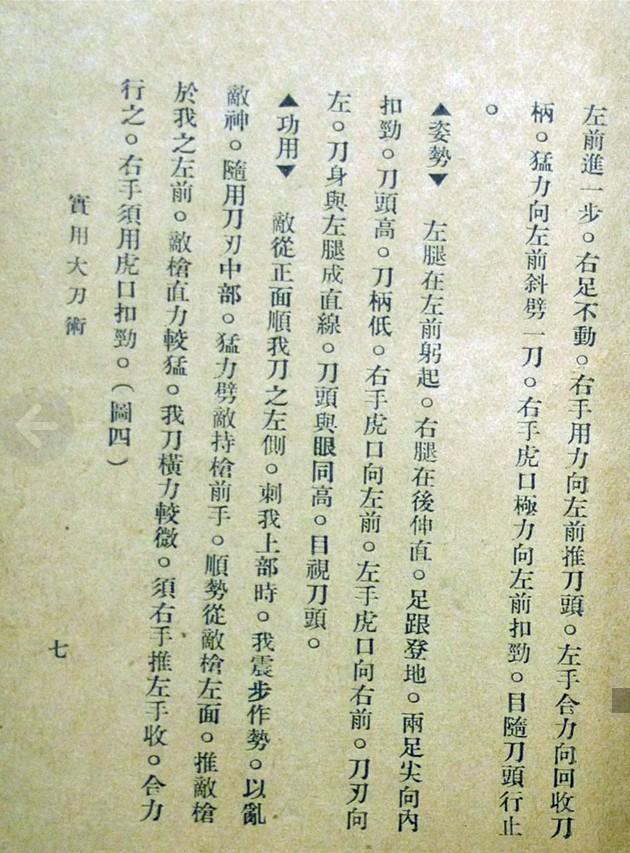 左前進一步。右足不動。右手用力向左前推刀頭。左手合力向回收刀
柄。猛力向左前斜劈一刀。右手虎口極力向左前扣勁。目隨刀頭行止
。
▲姿勢▼　左腿在左前躬起。右腿在後伸直。足跟登地。兩足尖向內
扣勁。刀頭高。刀柄低。右手虎口向左前。左手虎口向右前。刀刃向
左。刀身與左腿成直線。刀頭與眼同高。目視刀頭。
▲功用▼　敵從正面順我刀之左側。刺我上部時。我震步作勢。以亂
敵神。隨用刀刃中部。猛力劈敵持槍前手。順勢從敵槍左面。推敵槍
於我之左前。敵槍直力較猛。我刀橫力較微。須右手推左手收。合力
行之。右手須用虎口扣勁。（圖四）
實用大刀術
七